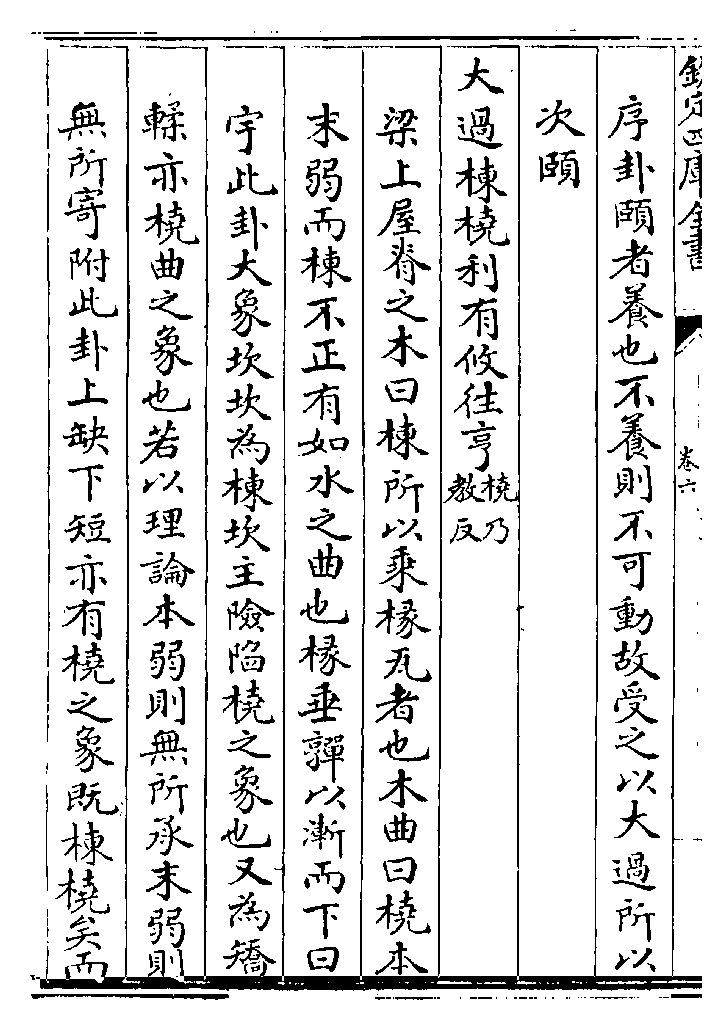 欽定四庫全書
卷六
序卦頤者養也不養則不可動故受之以大過所以
次頤
大過棟橈利有攸往亨橈乃教反
梁上屋脊之木曰棟所以乘椽瓦者也木曲曰橈本
末弱而棟不正有如水之曲也椽垂嚲以漸而下曰
宇此卦大象坎坎為棟坎主險陷橈之象也又為矯
輮亦橈曲之象也若以理論本弱則無所承末弱則
無所寄附此卦上缺下短亦有橈之象既棟橈矣而